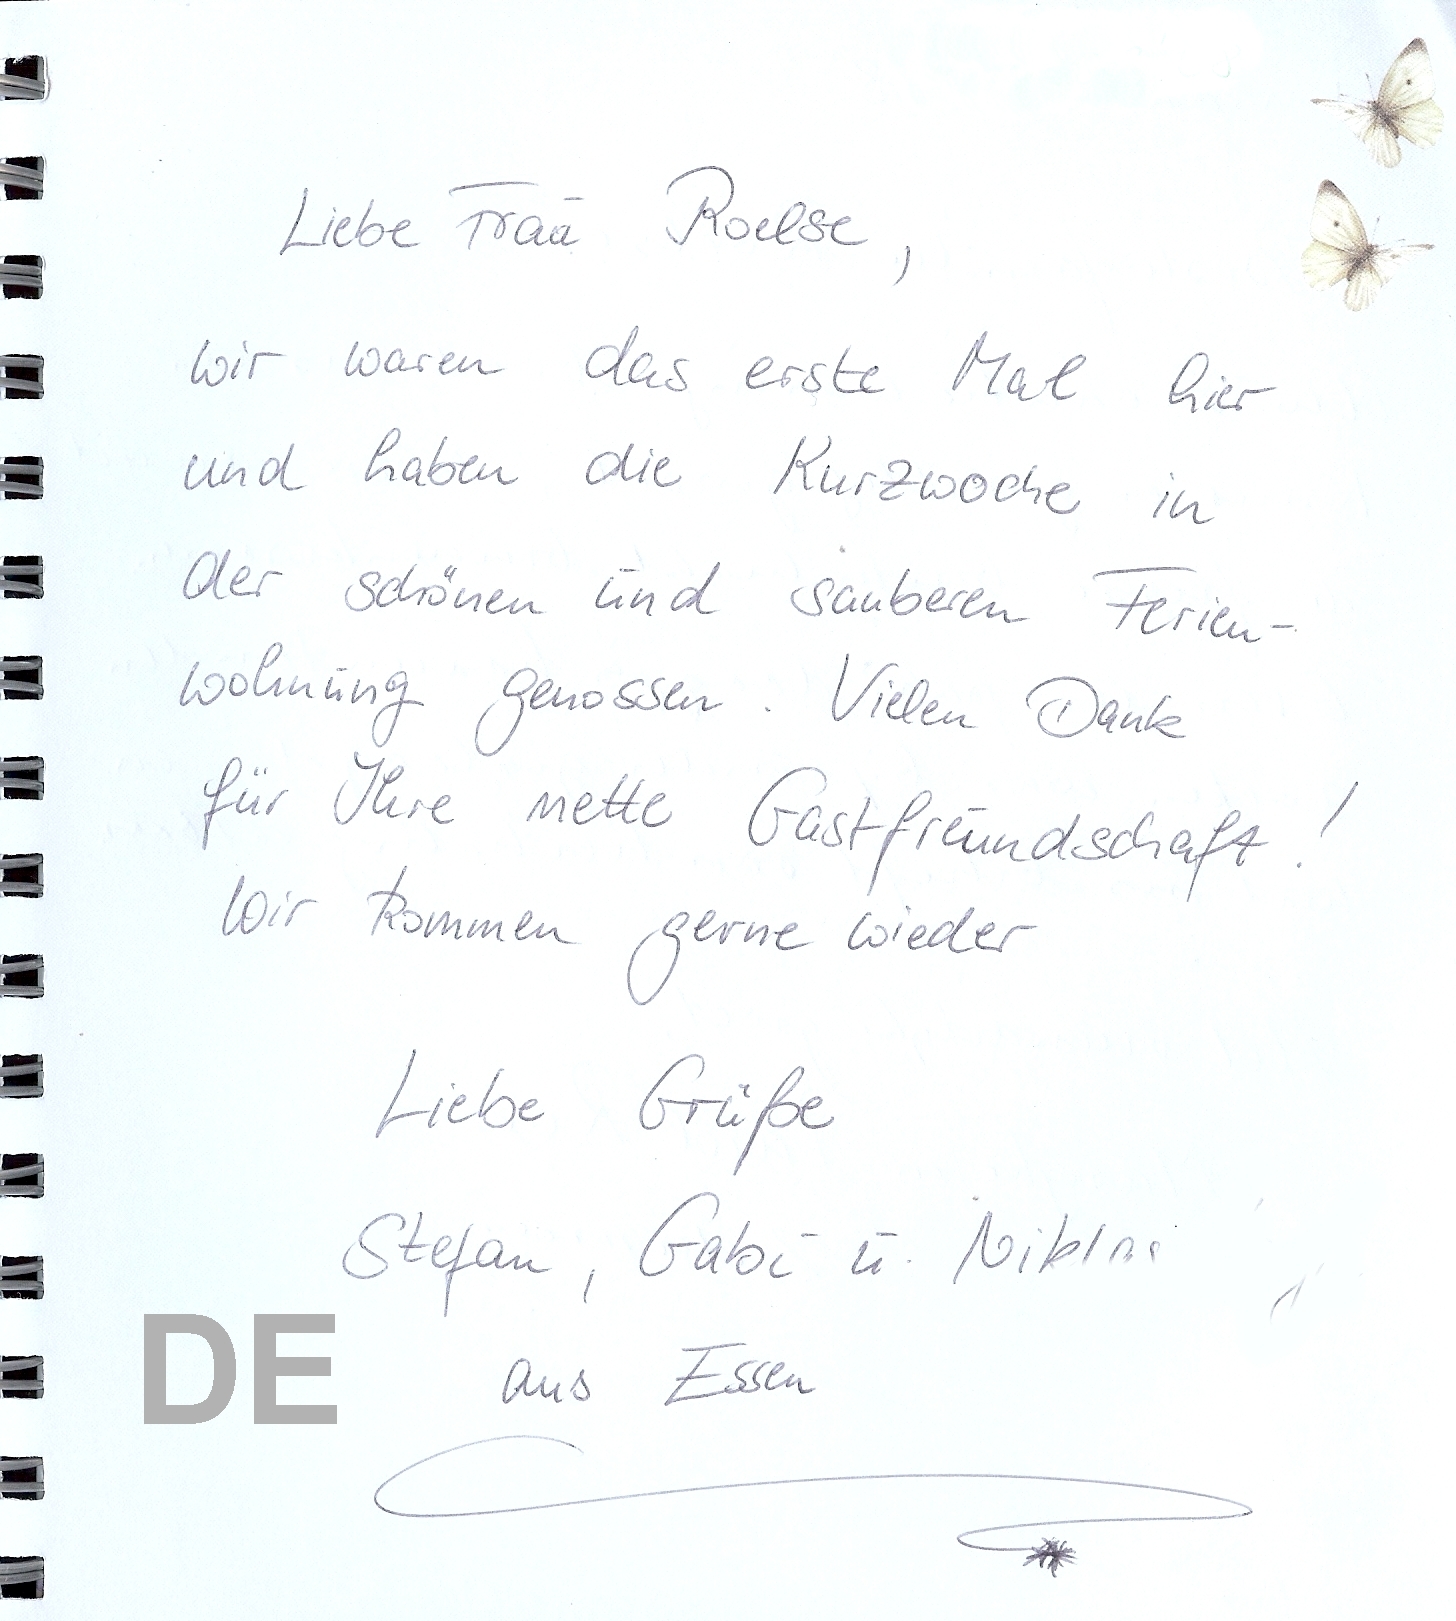 Liebe Frau Roelse,
wir waren das erste Mal hier
und haben die Kurzwoche in
der schönen und sauberen Ferien-
wohnung genossen. Vielen Dank
für Ihre nette Gastfreundschaft!
Wir kommen gerne wieder
Liebe Grüße
Stefan, Gabi u.
DE
aus Essen